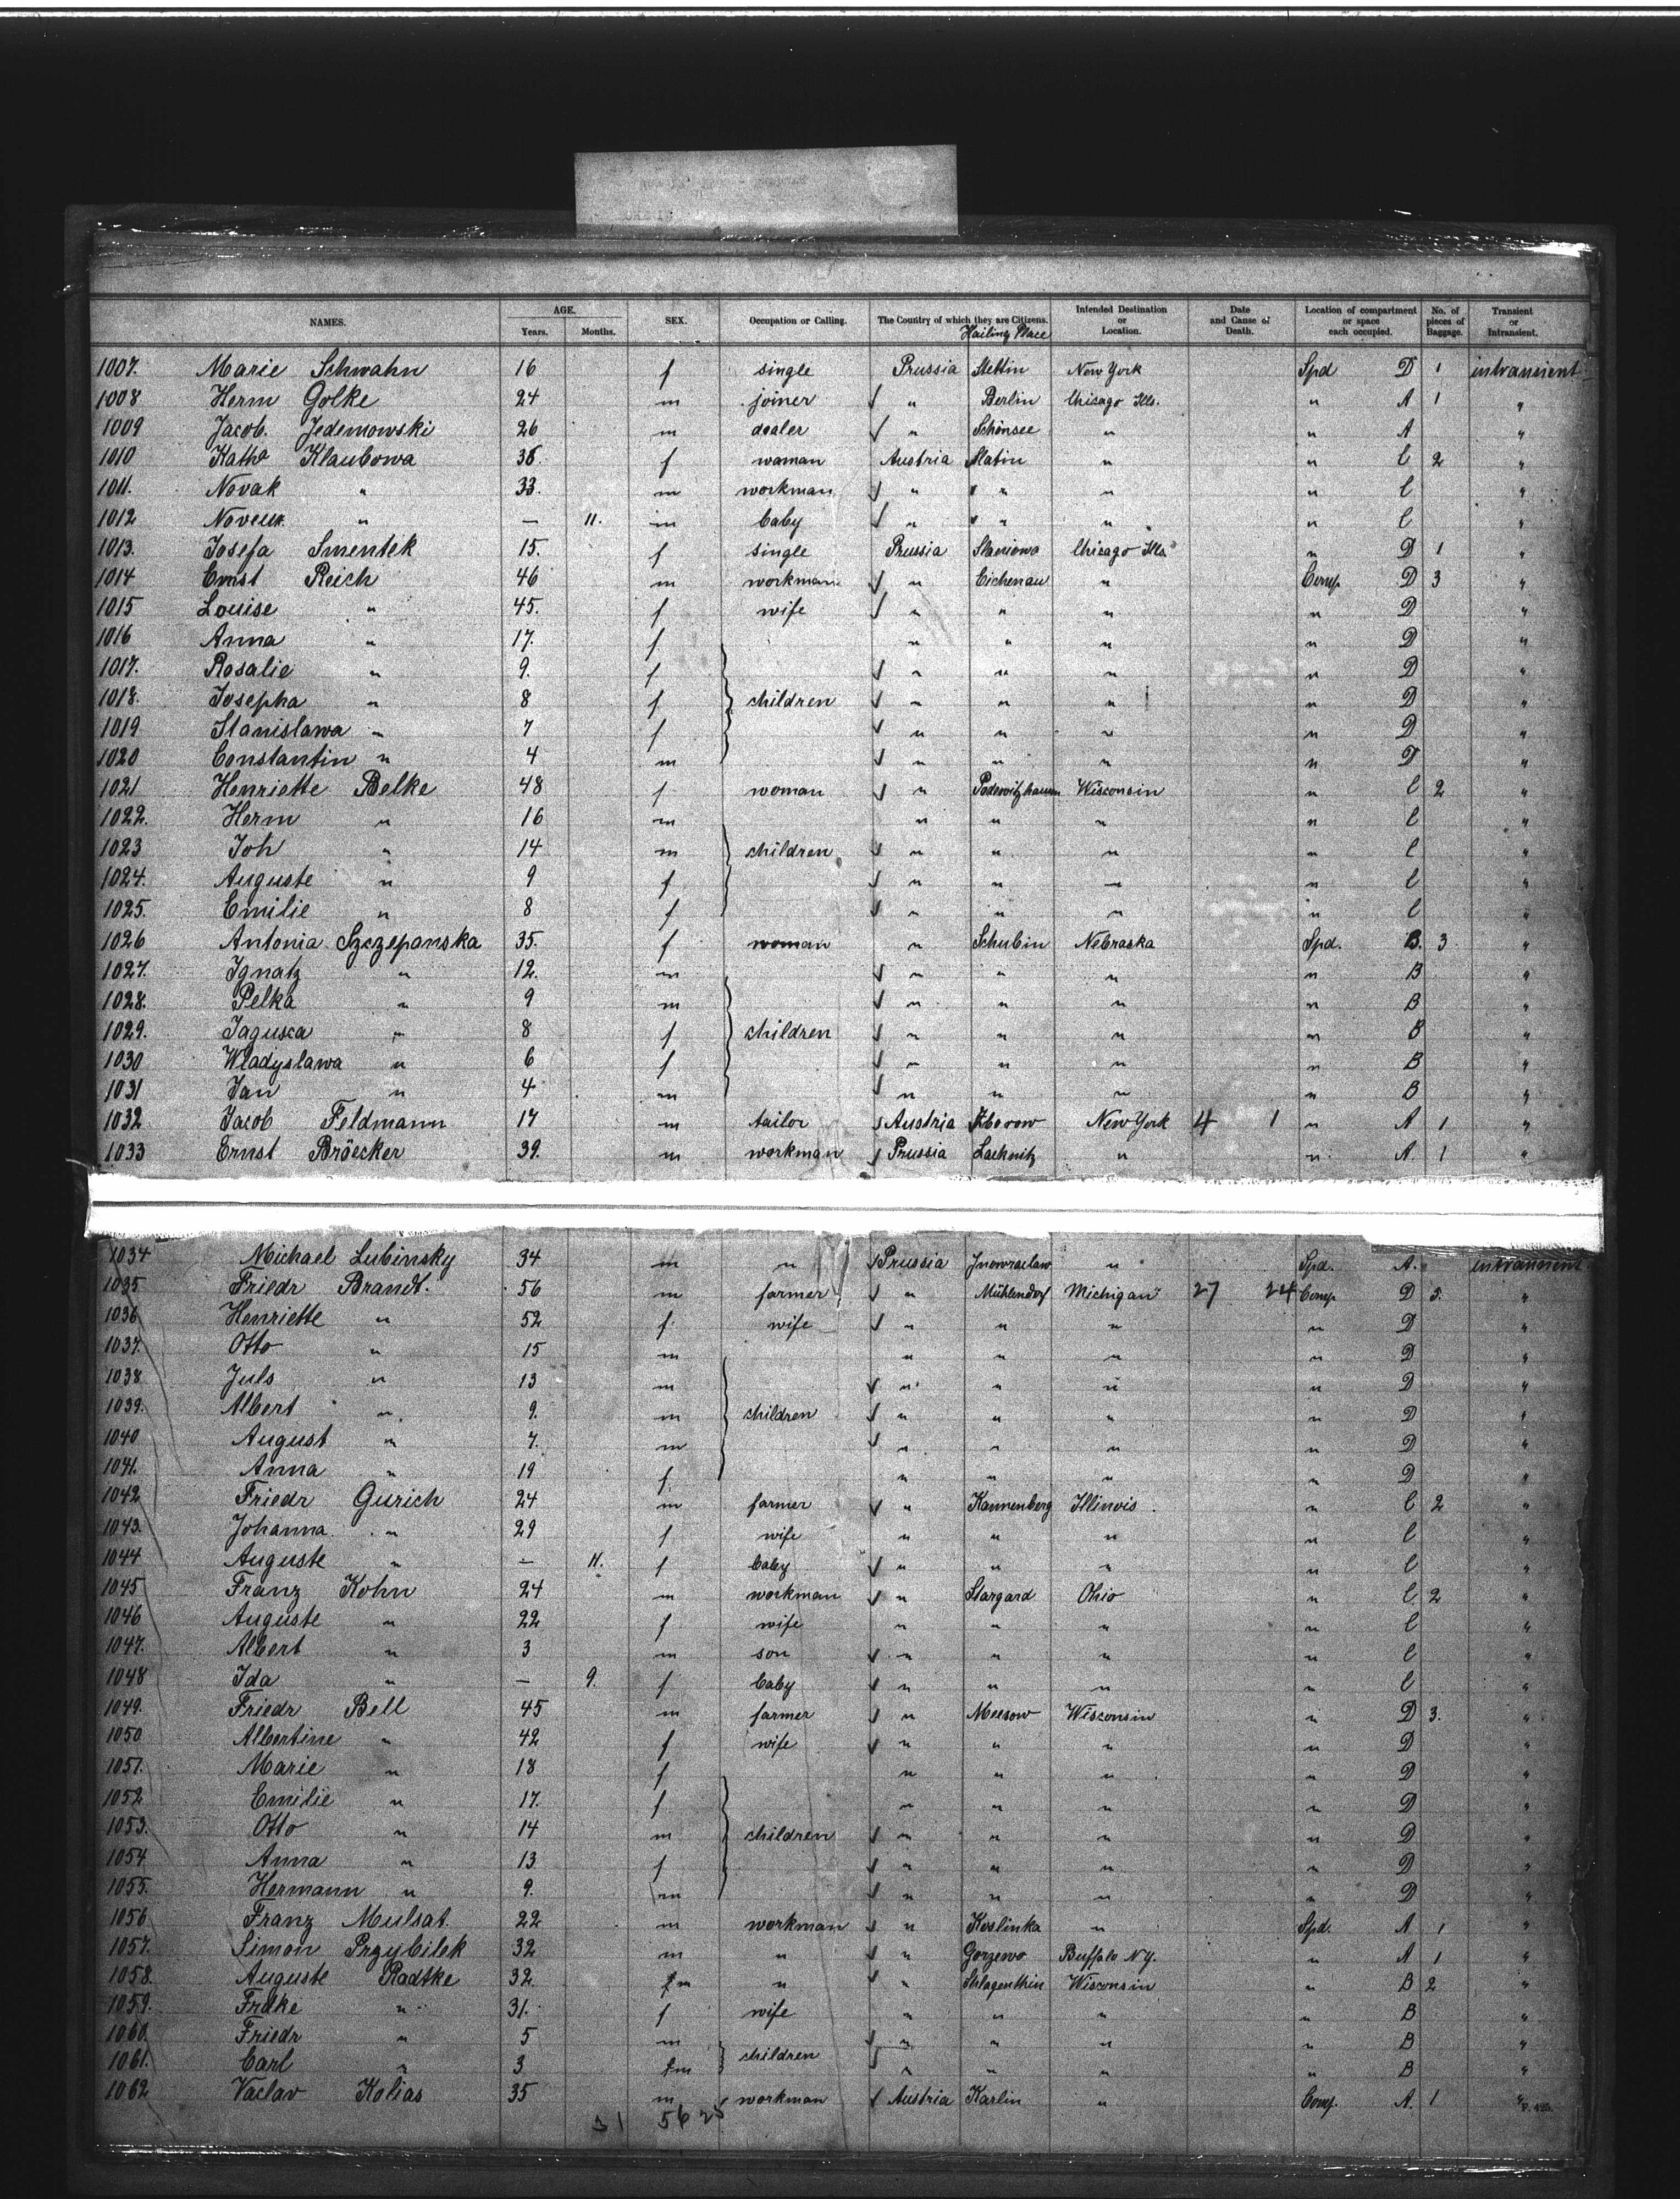 NAMES. AGE. Years. Months. SEX. Occupation or Calling. The Country of which they are Citizens. Hailing Place Intended Destination or Location. Date and Cause of Death. Location of compartment or space each occupied. No. of pieces of Baggage. Transient or Intransient.
1007. Marie Schwahn 16 f single Prussia Stettin New York Spd D 1 intransient
1008 Herm Golke 24 m joiner " Berlin Chicago Ills. " A 1 "
1009 Jacob. Jedemowski 26 m dealer " Schönsee " " A "
1010 Kath Klaubowa 38. f woman Austria Slatin " " C 2 "
1011. Novak " 33. m workman " " " " C "
1012 " — 11. m baby " " " " C "
1013. Josefa Smentek 15. f single Prussia Chicago Ills " D 1 "
1014 Ernst Reich 46 m workman " Eichenau " Comp D 3 "
1015 Louise " 45. f wife " " " " D "
1016 Anna " 17. f " " " " D "
1017. Rosalie " 9. f " " " " D "
1018. Josepha " 8 f children " " " " D "
1019 Stanislawa " 7 f " " " " D "
1020 Constantin " 4 m " " " " D "
1021 Henriette Belke 48 f woman " Wisconsin " C 2 "
1022. Herm " 16 m " " " " C "
1023 Joh " 14 m children " " " " C "
1024. Auguste " 9 f " " " " C "
1025. Emilie " 8 f " " " " C "
1026 Antonia Szczepanska 35. f woman " Schubin Nebraska Spd. B. 3 "
1027. Ignatz " 12. m " " " " B "
1028. Pelka " 9 m " " " " B "
1029. Jagusca " 8 f children " " " " B "
1030 Wladyslawa " 6 f " " " " B "
1031 Jan " 4 m " " " " B "
1032 Jacob Feldmann 17 m tailor Austria Zborow New York 4 1 " A 1 "
1033 Ernst Bröecker 39. m workman Prussia Lachnitz " " A. 1 "
1034 Michael Lubinsky 34 m " Prussia Jnowraclaw " Spd. A. intransient
1035 Friedr Brandt. 56 m farmer " Mühlendorf Michigan 27 24 Comp D 5. "
1036 Henriette " 52 f. wife " " " " D "
1037. Otto " 15 m " " " " D "
1038 Juls " 13 m " " " " D "
1039. Albert " 9. m children " " " " D "
1040 August " 7. m " " " " D "
1041. Anna " 19 f. " " " " D "
1042 Friedr Gurich 24 m farmer " Kannenberg Illinois. " C 2 "
1043. Johanna " 29 f wife " " " " C "
1044 Auguste " — 11. f baby " " " " C "
1045 Franz Kohn 24 m workman " Stargard Ohio " C 2 "
1046 Auguste " 22 f wife " " " " C "
1047. Albert " 3 m son " " " " C "
1048 Ida " — 9. f baby " " " " C "
1049. Friedr Bell 45 m farmer " Meesow Wisconsin " D 3. "
1050 Albertine " 42 f wife " " " " D "
1051. Marie " 18 f " " " " D "
1052 Emilie " 17. f " " " " D "
1053. Otto " 14 m children " " " " D "
1054 Anna " 13 f " " " " D "
1055. Hermann " 9. m " " " " D "
1056 Franz Mulsat. 22 m workman " Koslinka " Spd. A 1 "
1057. Simon Przybilek 32 m " " Gorzewo Buffalo N.Y. " A 1 "
1058. Auguste Radtke 32 m " " Schlagenthin Wisconsin " B 2 "
1059. Frdke " 31. f wife " " " " B "
1060. Friedr " 5 m " " " " B "
1061. Carl " 3 m children " " " " B "
1062 Vaclav Kolias 35 m workman Austria Karlin " Comp. A. 1 "
31 56 25